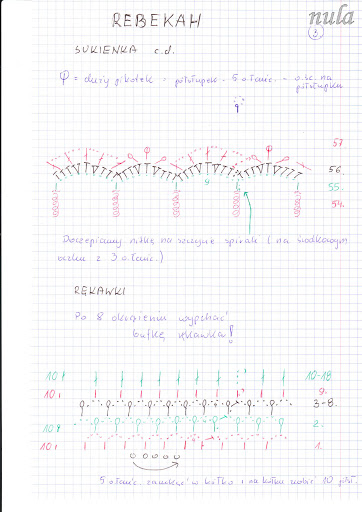 nula
REBEKAH
3
SUKIENKA c.d.
= duży pikotek = półsłupek - 5 o łańc. - o.śc. na
półsłupku
57.
56.
9
55.
54.
Doczepiamy nitkę na szczycie spirali (na środkowym
oczku z 3 o łańc.)
RĘKAWKI
Po 8 okrążeniu wypchać
bufkę rękawka!
10
10-18
10
9.
3-8.
10
2.
10
1.
5 o łańc. zamknąć w kółko i na kółku zrobić 10 półsł.